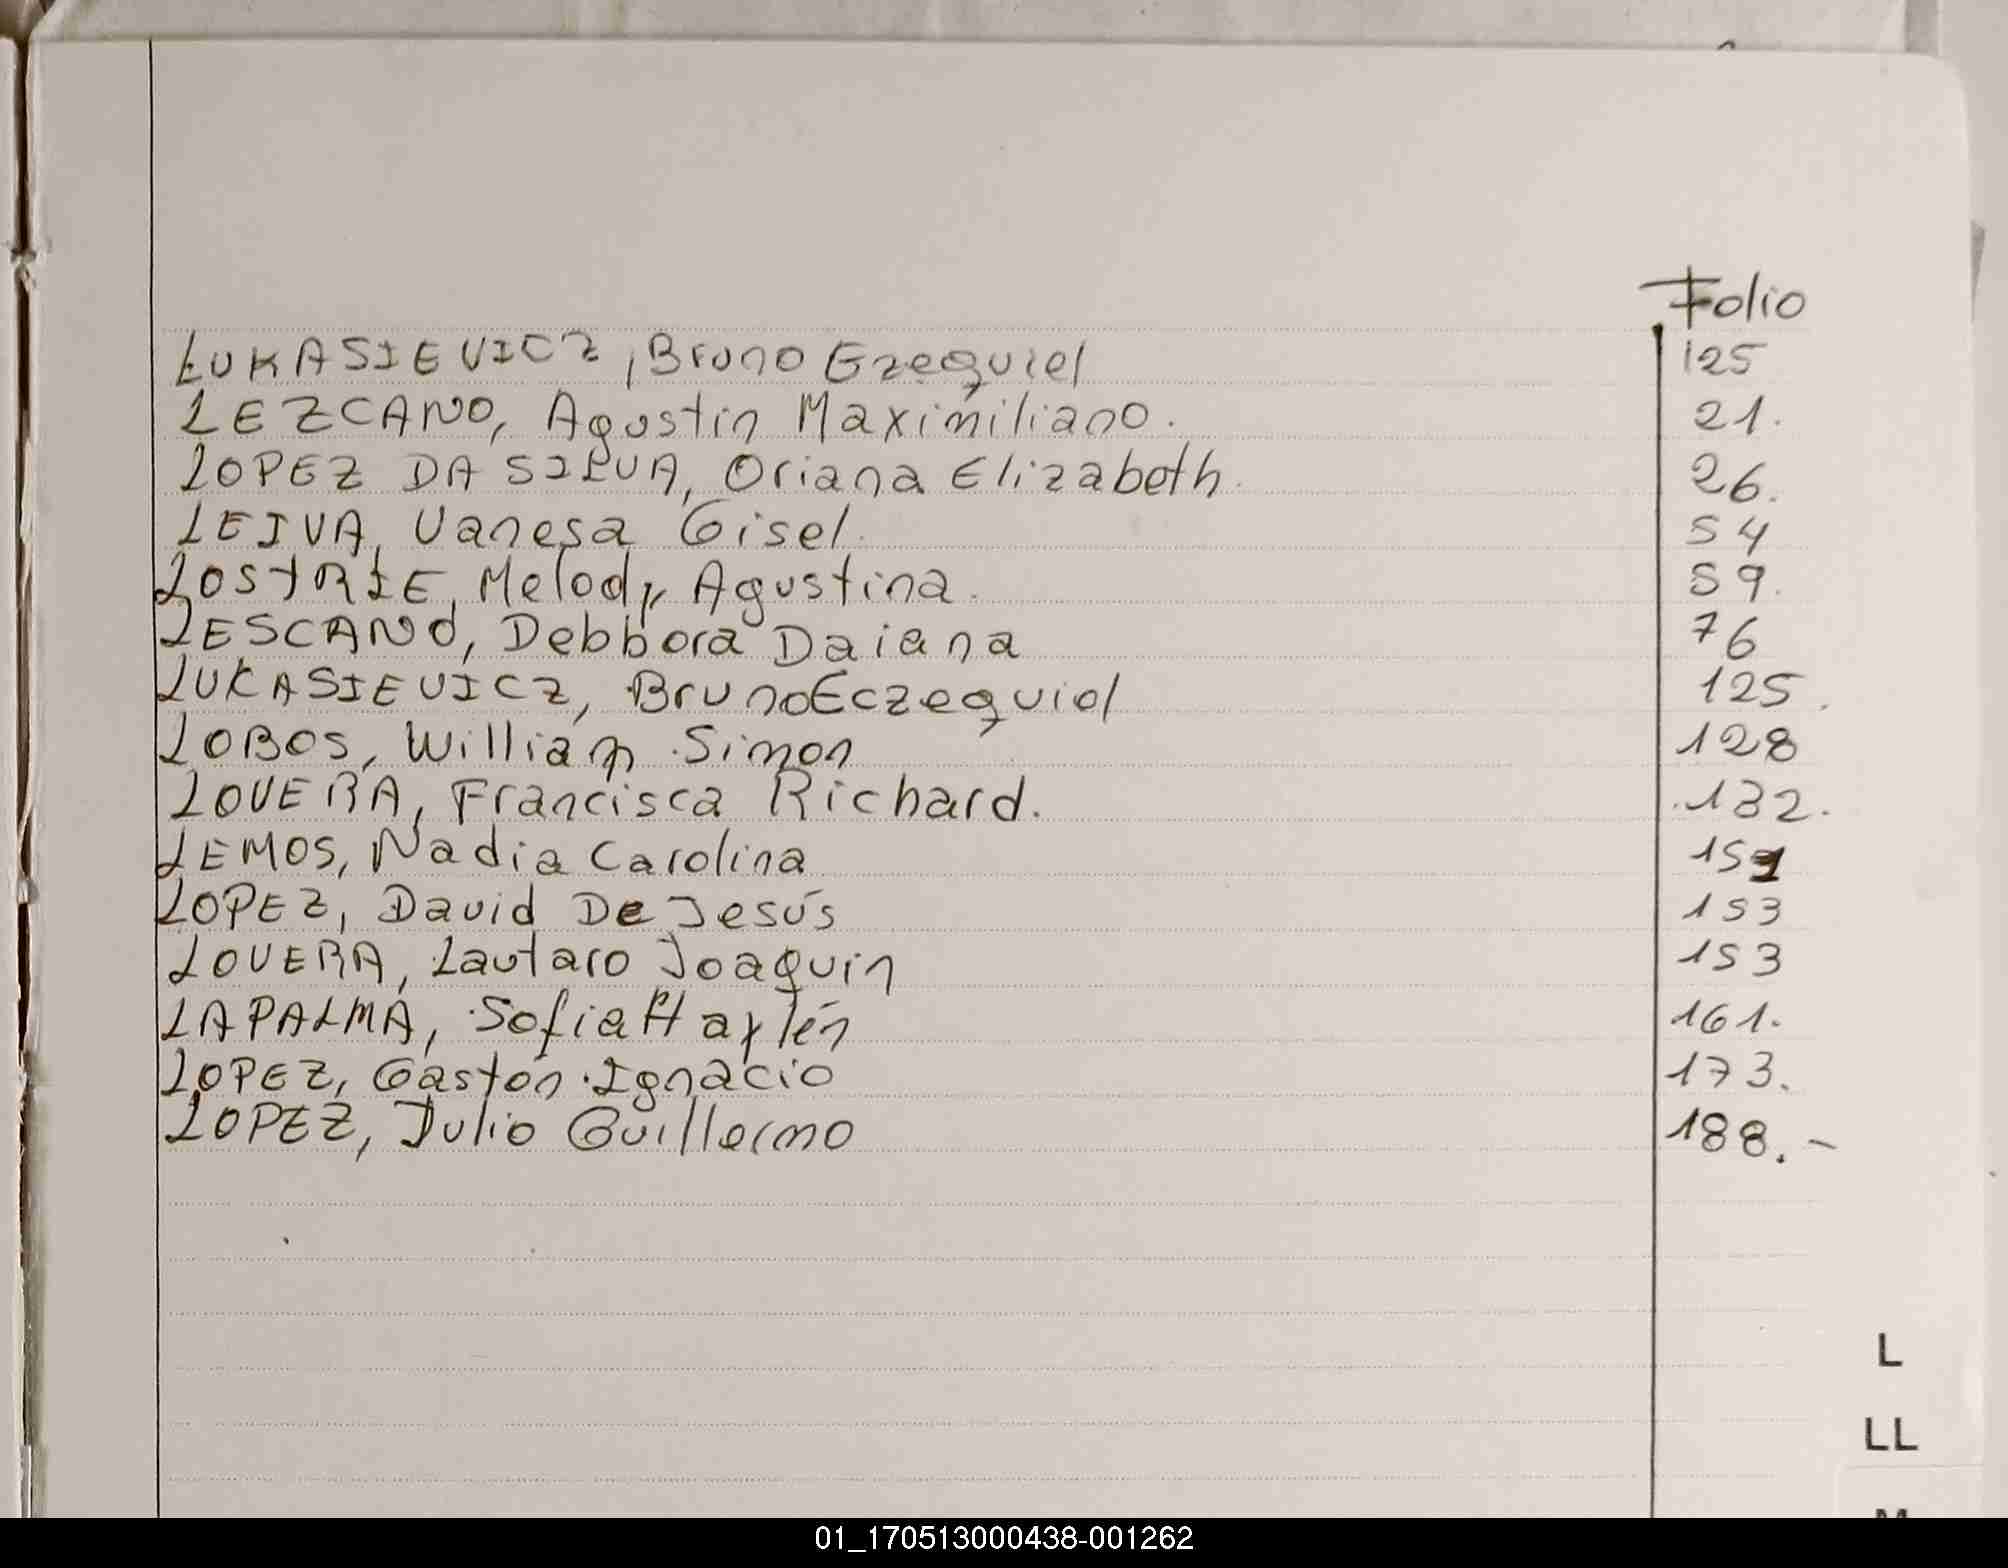 Folio
LUKASIEVICZ, Bruno Ezequiel 125
LEZCANO, Agustin Maximiliano. 21.
LOPEZ DA SILVA, Oriana Elizabeth. 26.
LEIVA, Vanesa Gisel. 54
LOSTRIE, Melody Agustina. 59.
LESCANO, Debbora Daiana 76
LUKASIEVICZ, Bruno Eczequiel 125.
LOBOS, William Simon 128
LOVERA, Francisca Richard. 132.
LEMOS, Nadia Carolina 151
LOPEZ, David De Jesús 153
LOVERA, Lautaro Joaquin 153
LAPALMA, Sofia Haylén 161.
LOPEZ, Gastón Ignacio 173.
LOPEZ, Julio Guillermo 188.-
L
LL
01_170513000438-001262